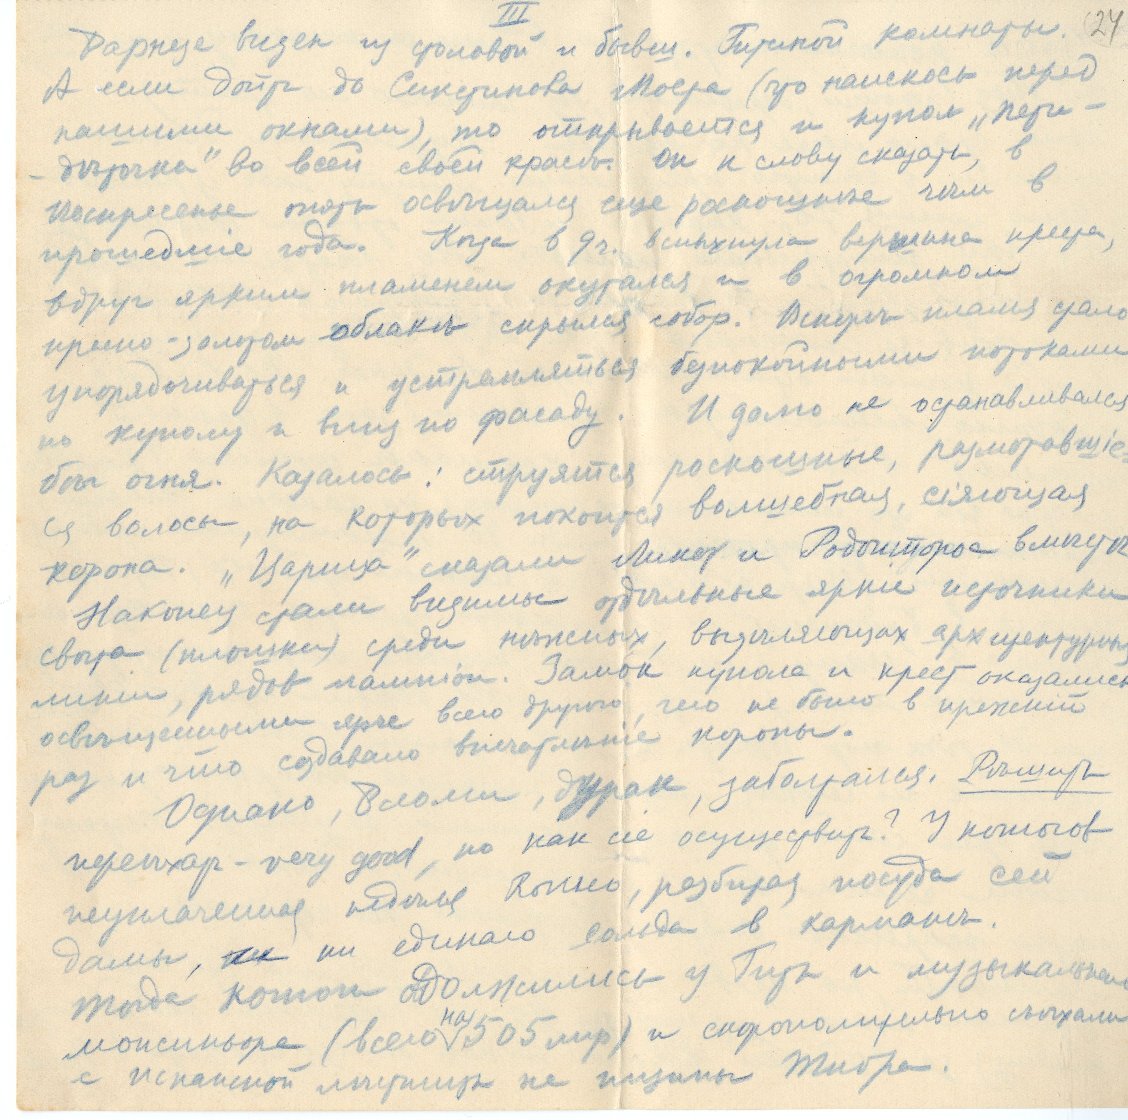 III
24
Дворец виден из столовой и бывш. Гитиной комнаты.
А если дойти до Сикстинова Моста (что наискось перед
нашими окнами), то открывается и купол „Пети-
-дѣточка" во всей своей красѣ. Он к слову сказать, в
Воскресенье опять освѣщался еще роскошнѣе чѣм в
прошедшіе года. Когда в 9 ч. вспыхнула вершина креста,
вдруг ярким пламенем окутался и в огромном
красно-золотом облакѣ скрылся собор. Вскорѣ пламя стало
упорядочиваться и устремляться безпокойными потоками
по куполу и вниз по фасаду. И долго не останавливался
бѣг огня. Казалось: струятся роскошные, разметавшіе-
ся волосы, на которых покоится волшебная, сіяющая
корона. „Царица" сказали и вмѣстѣ
Наконец стали видимы отдѣльные яркіе источники
свѣта (плошки) среди нѣжных, выделяющих архитектурныя
линіи, рядов лампіон. Замок купола и крест оказались
освѣщенными ярче всего другого, чего не было в прежній
раз и что создавало впечатлѣніе короны.
Однако, Вломи, дурак, заболтался. Рѣшить
переѣхать - very good, но как сіе осуществить? У котов
неуплаченная недѣля, разбитая посуда сей
дамы, ни единаго сольда в карманѣ.
Тогда коты одолжились у Гити и музыкальнаго
монсиньора (всего на 505 лир) и скоропомительно съѣхали
с Испанской лѣстницы на низины Тибра.